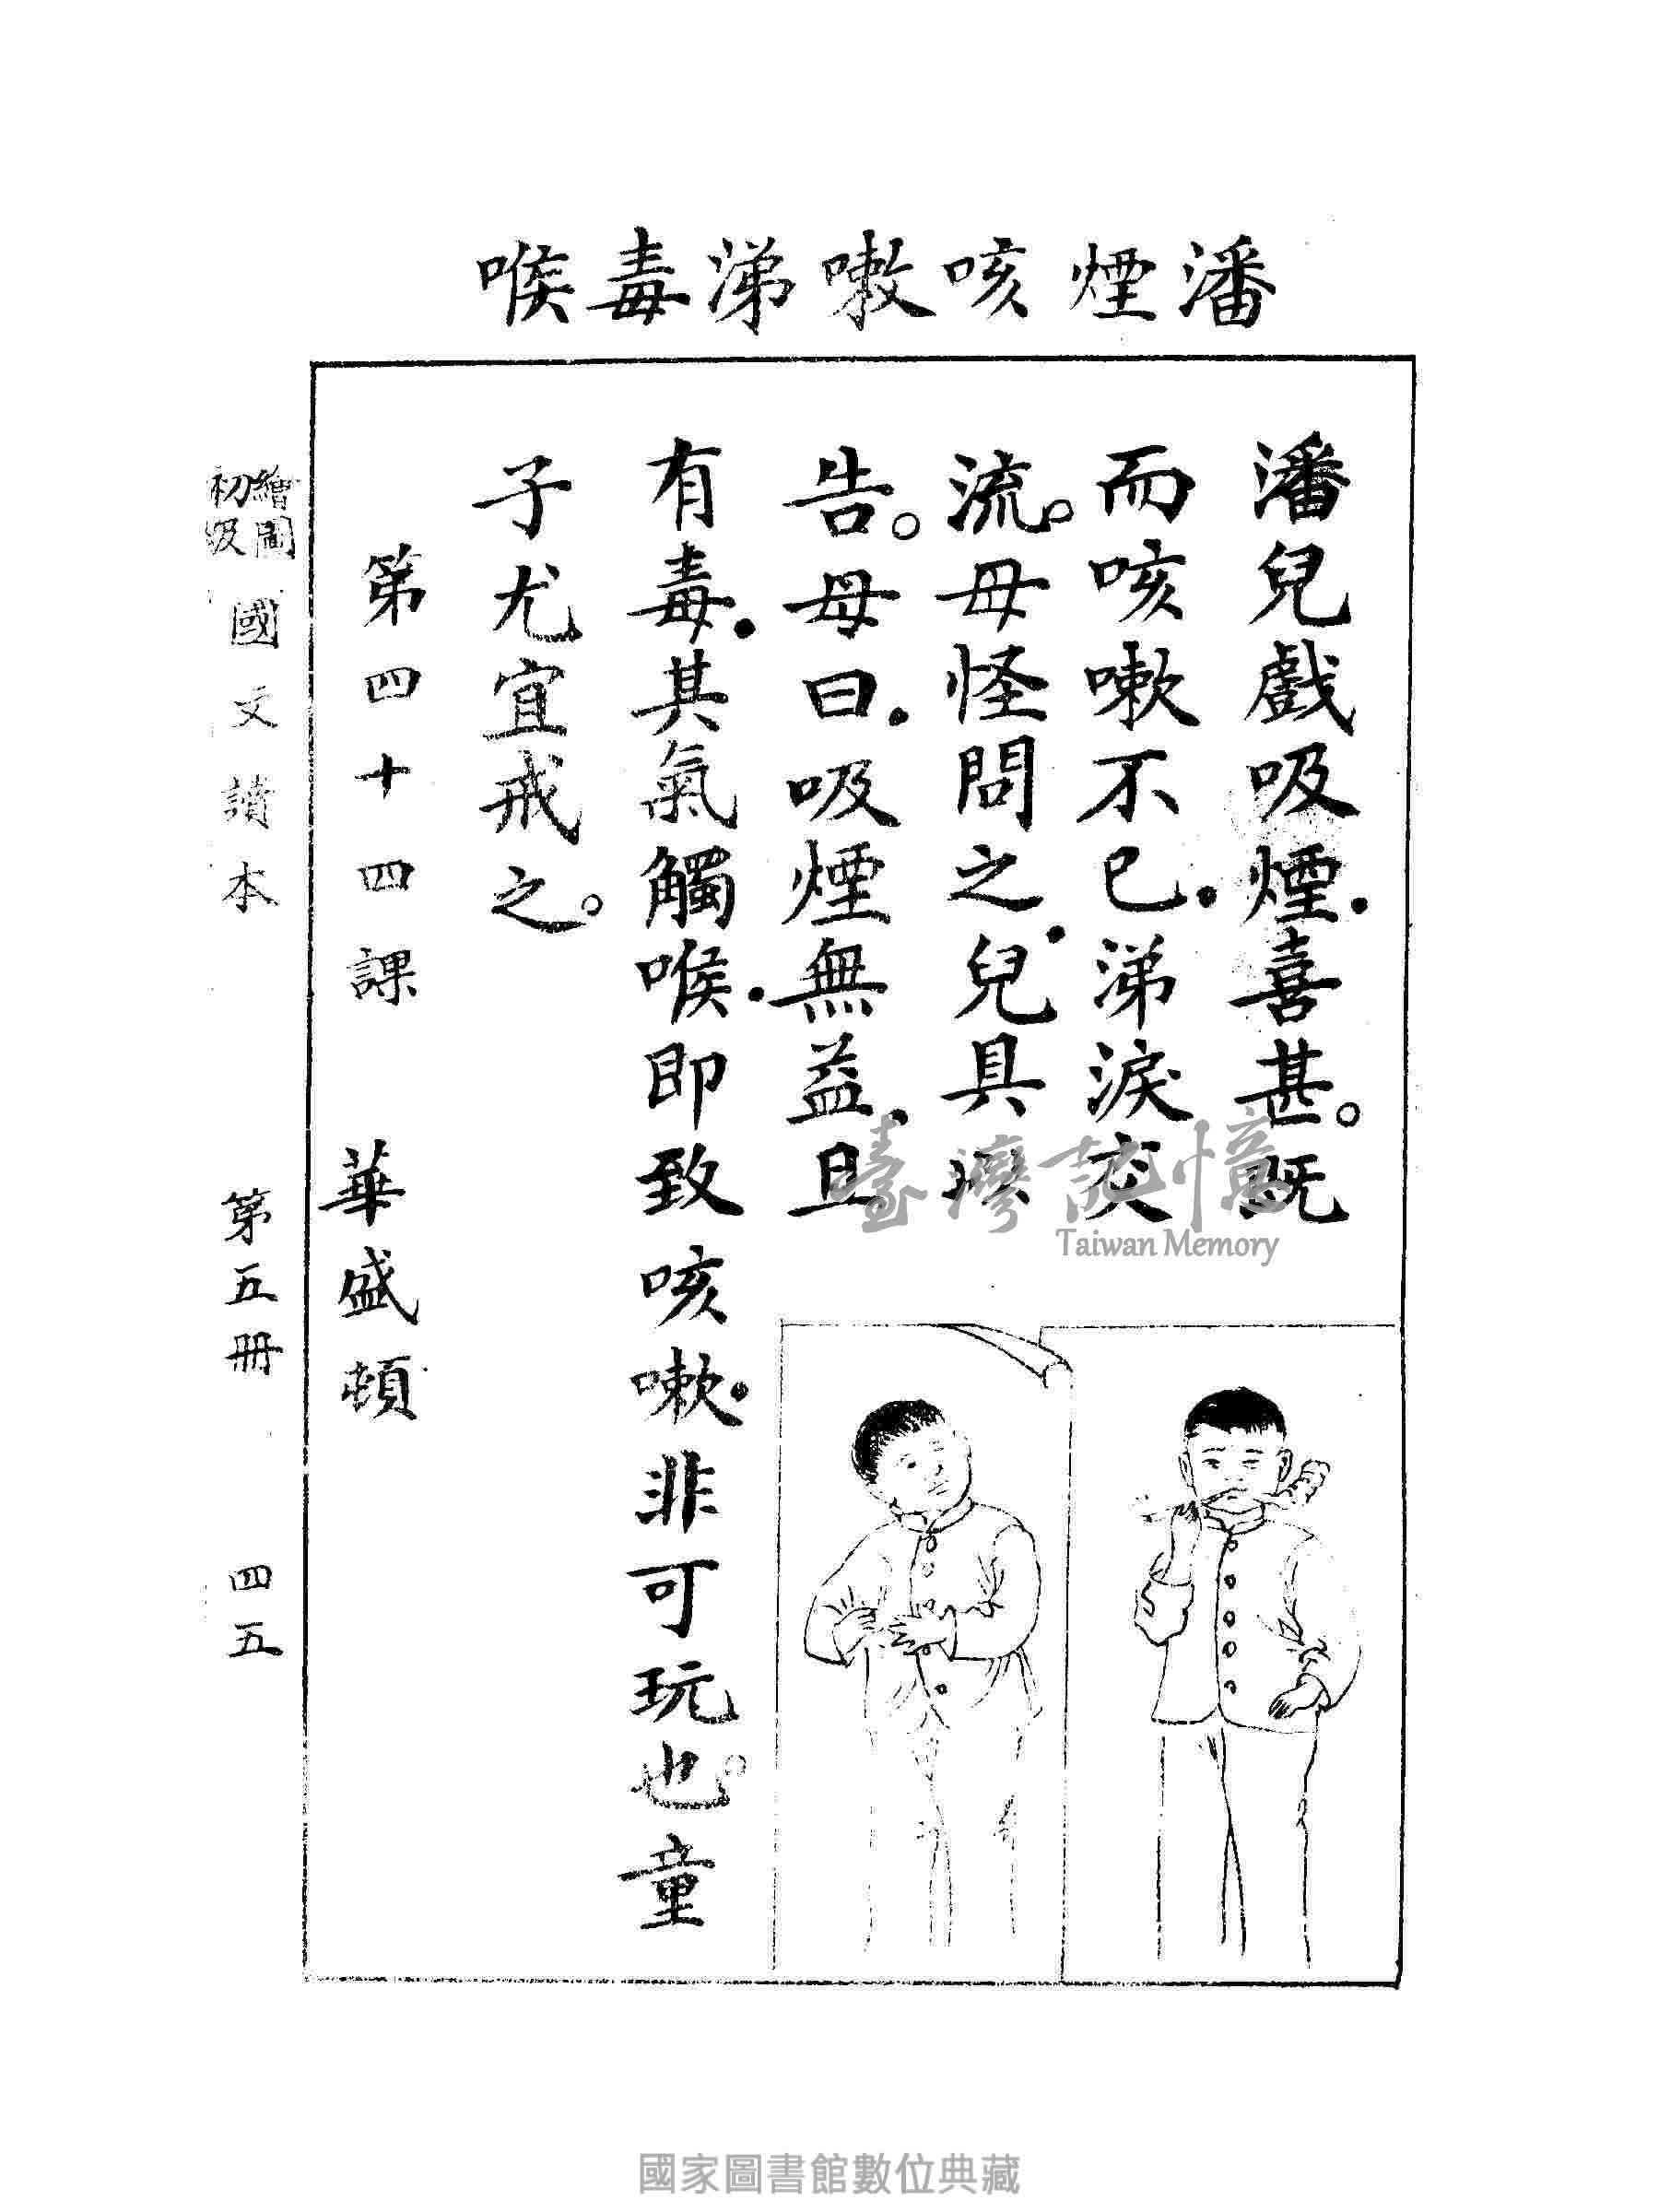 潘煙咳嗽涕毒喉
潘兒戲吸煙．喜甚。既
而咳嗽不已．涕淚交
流。母怪問之．兒具以
告。母曰．吸煙無益．且
有毒．其氣觸喉．即致咳嗽．非可玩也。童
子尤宜戒之。
第四十四課 華盛頓
繪圖初級國文讀本 第五冊 四五
臺灣記憶
Taiwan Memory
國家圖書館數位典藏